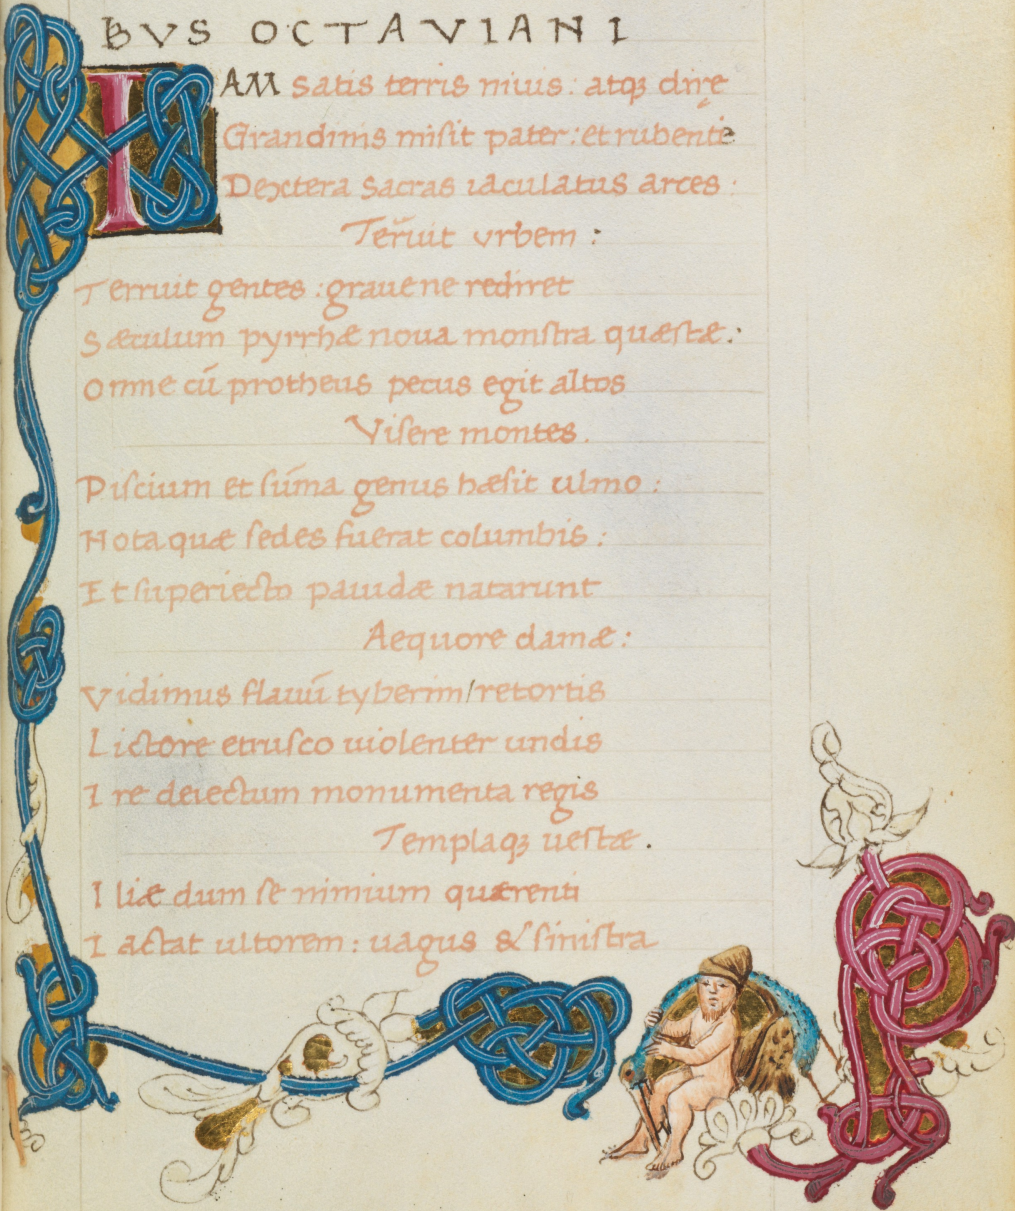 BVS OCTAVIANI
IAM satis terris niuis : atqꝫ dirę
Grandinis misit pater : et rubente
Dextera sacras iaculatus arces :
Ter̄uit vrbem :
Terruit gentes : graue ne rediret
Sæculum pyrrhæ noua monſtra quæſtæ .
Omne cū protheus pecus egit altos
Viſere montes .
Piſcium et ſūma genus hæſit ulmo :
Nota quæ ſedes fuerat columbis :
Et ſuperiecto pauidæ natarunt
Aequore damæ :
Vidimus flauū tyberim / retortis
Lictore etruſco uiolenter undis
Ire deiectum monumenta regis
Templaqꝫ ueſtæ .
Iliæ dum ſe nimium quærenti
Iactat ultorem : uagus & ſiniſtra